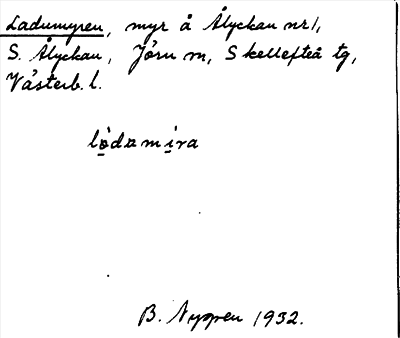 Ladumyren, myr å Ålyckan nr 1,
S. Ålyckan, Jörn sn, Skellefteå tg,
Västerb. l.
lòdamira
B. Nygren 1932.